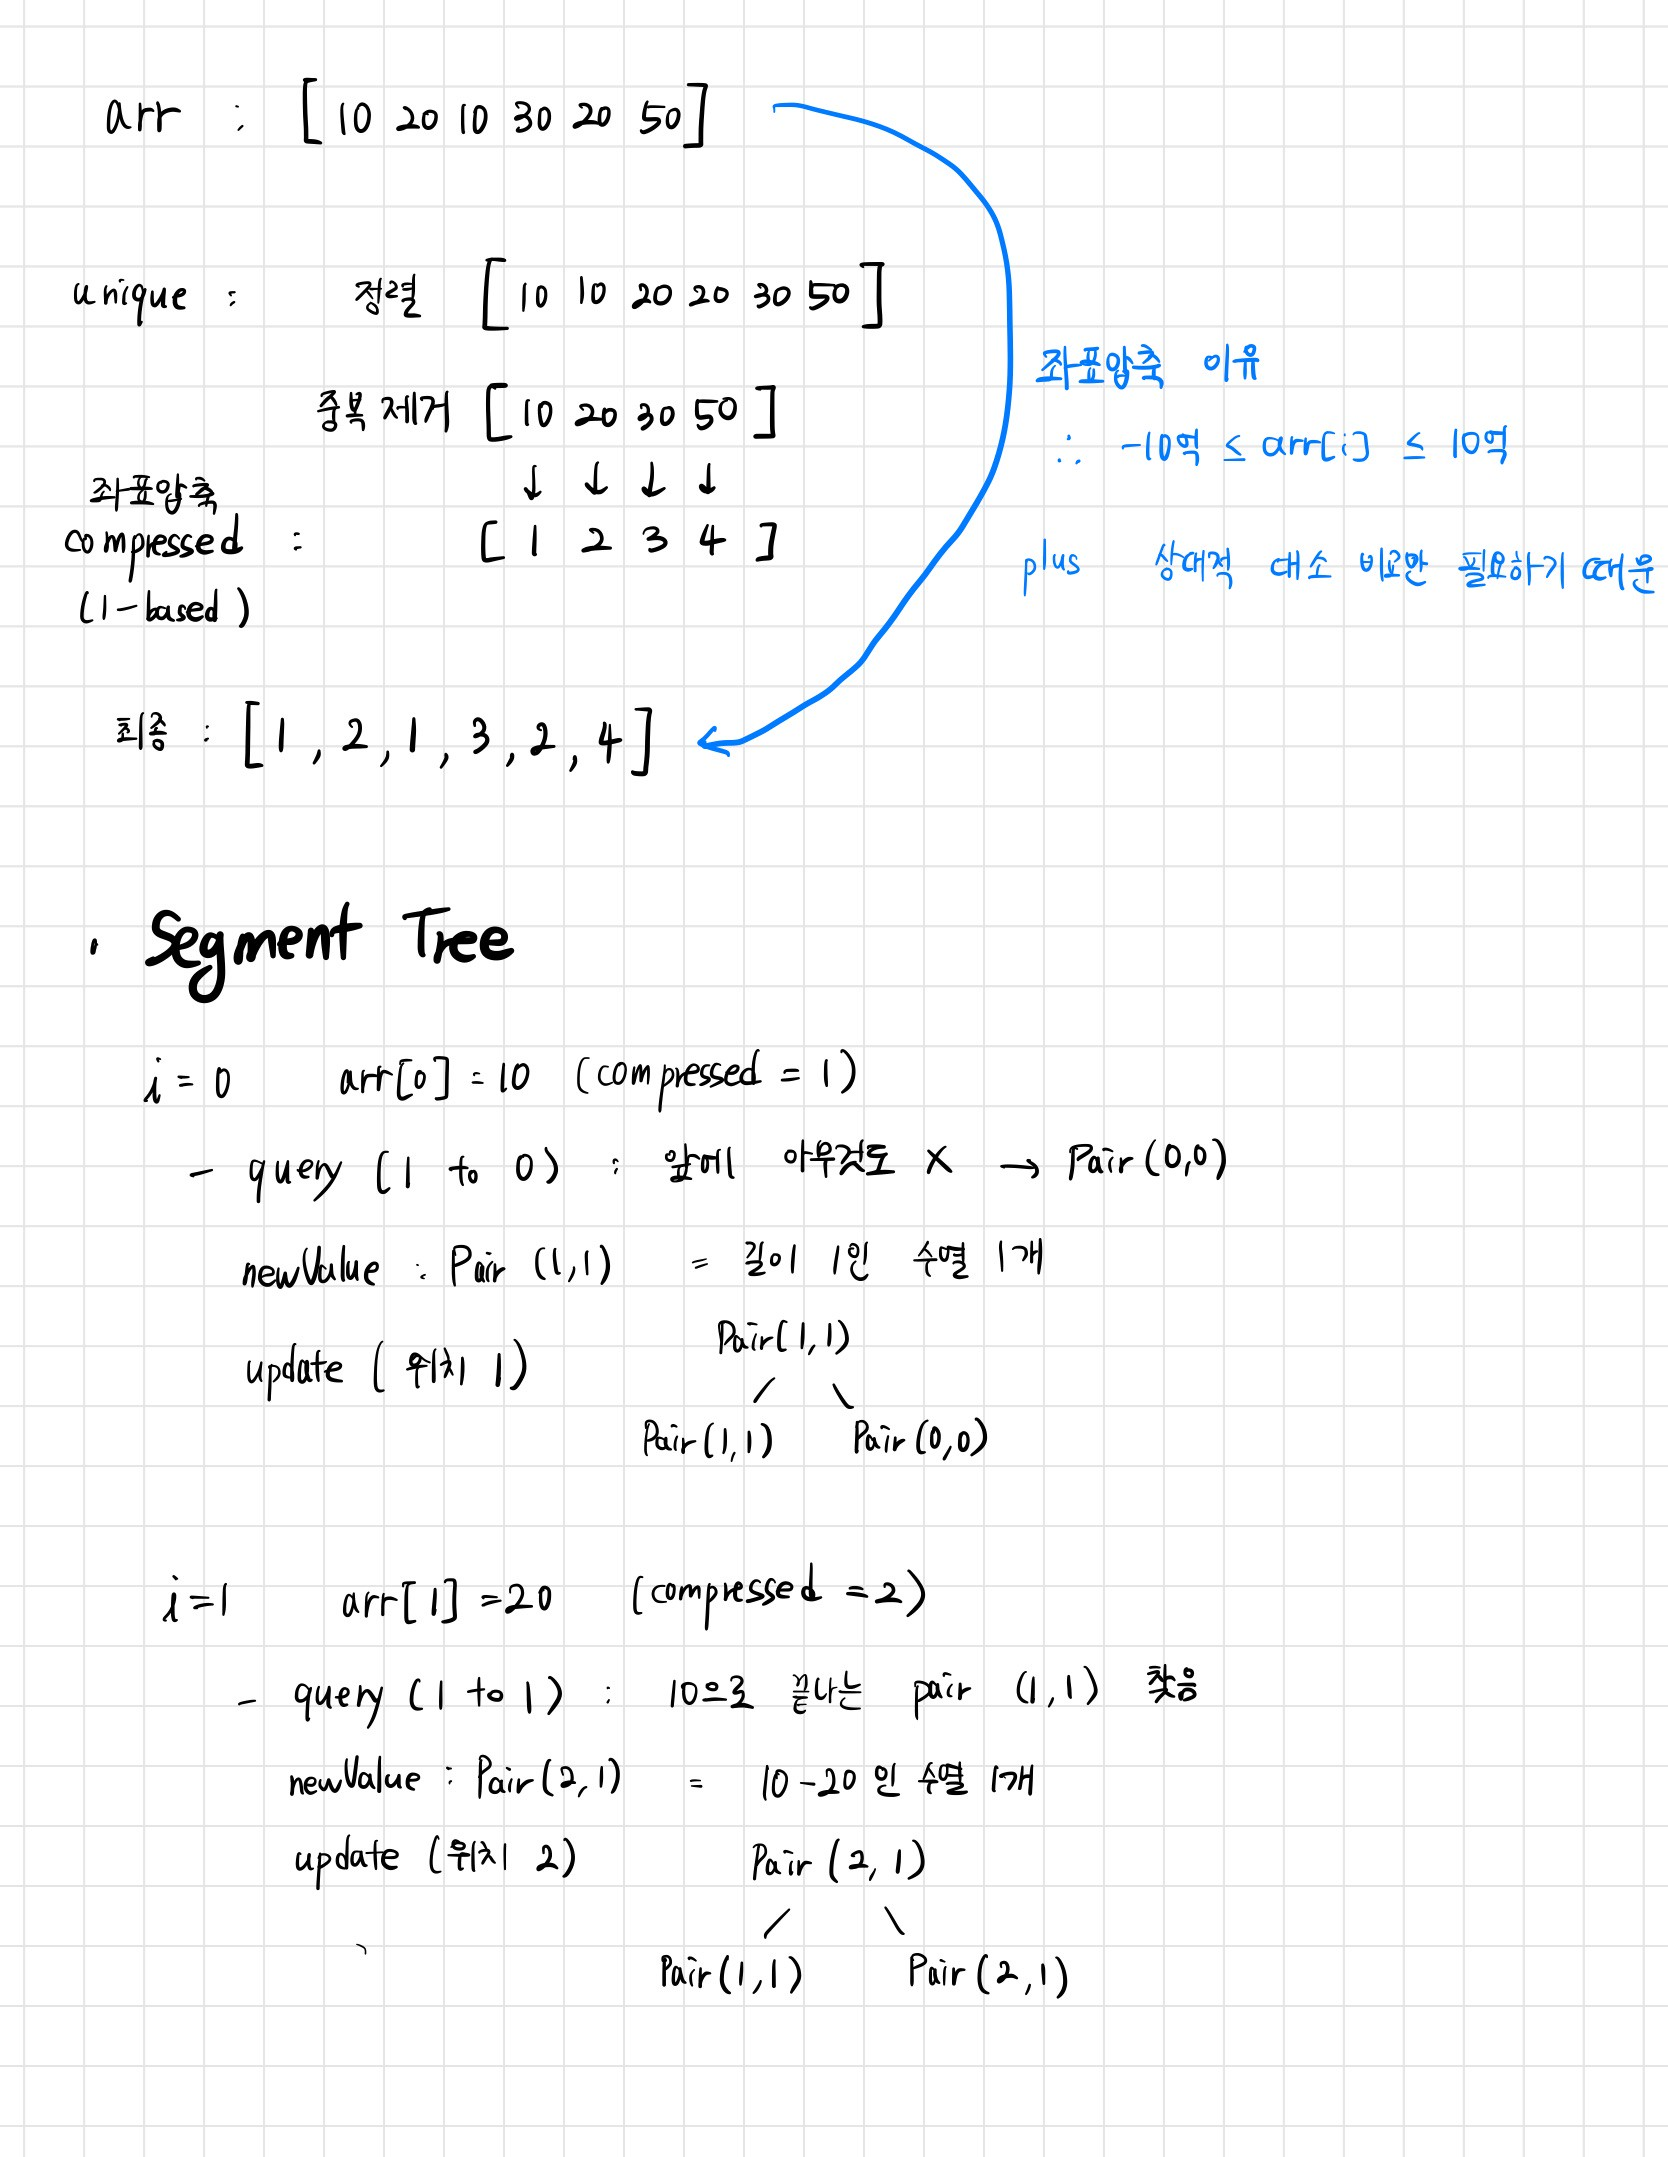 arr : [10 20 10 30 20 50]
unique : 정렬 [10 10 20 20 30 50]
중복 제거 [10 20 30 50]
↓ ↓ ↓ ↓
좌표압축
compressed : [1 2 3 4]
(1-based)
좌표압축 이유
∴ -10억 ≤ arr[i] ≤ 10억
plus 상대적 대소 비교만 필요하기 때문
최종 : [1, 2, 1, 3, 2, 4]
· Segment Tree
i = 0 arr[0] = 10 (compressed = 1)
- query (1 to 0) : 앞에 아무것도 X → Pair(0,0)
newValue : Pair (1,1) = 길이 1인 수열 1개
update (위치 1)
Pair(1,1)
/ \
Pair(1,1) Pair(0,0)
i=1 arr[1]=20 (compressed =2)
- query (1 to 1) : 10으로 끝나는 pair (1,1) 찾음
newValue : Pair(2,1) = 10-20 인 수열 1개
update (위치 2)
Pair (2,1)
/ \
Pair(1,1) Pair(2,1)